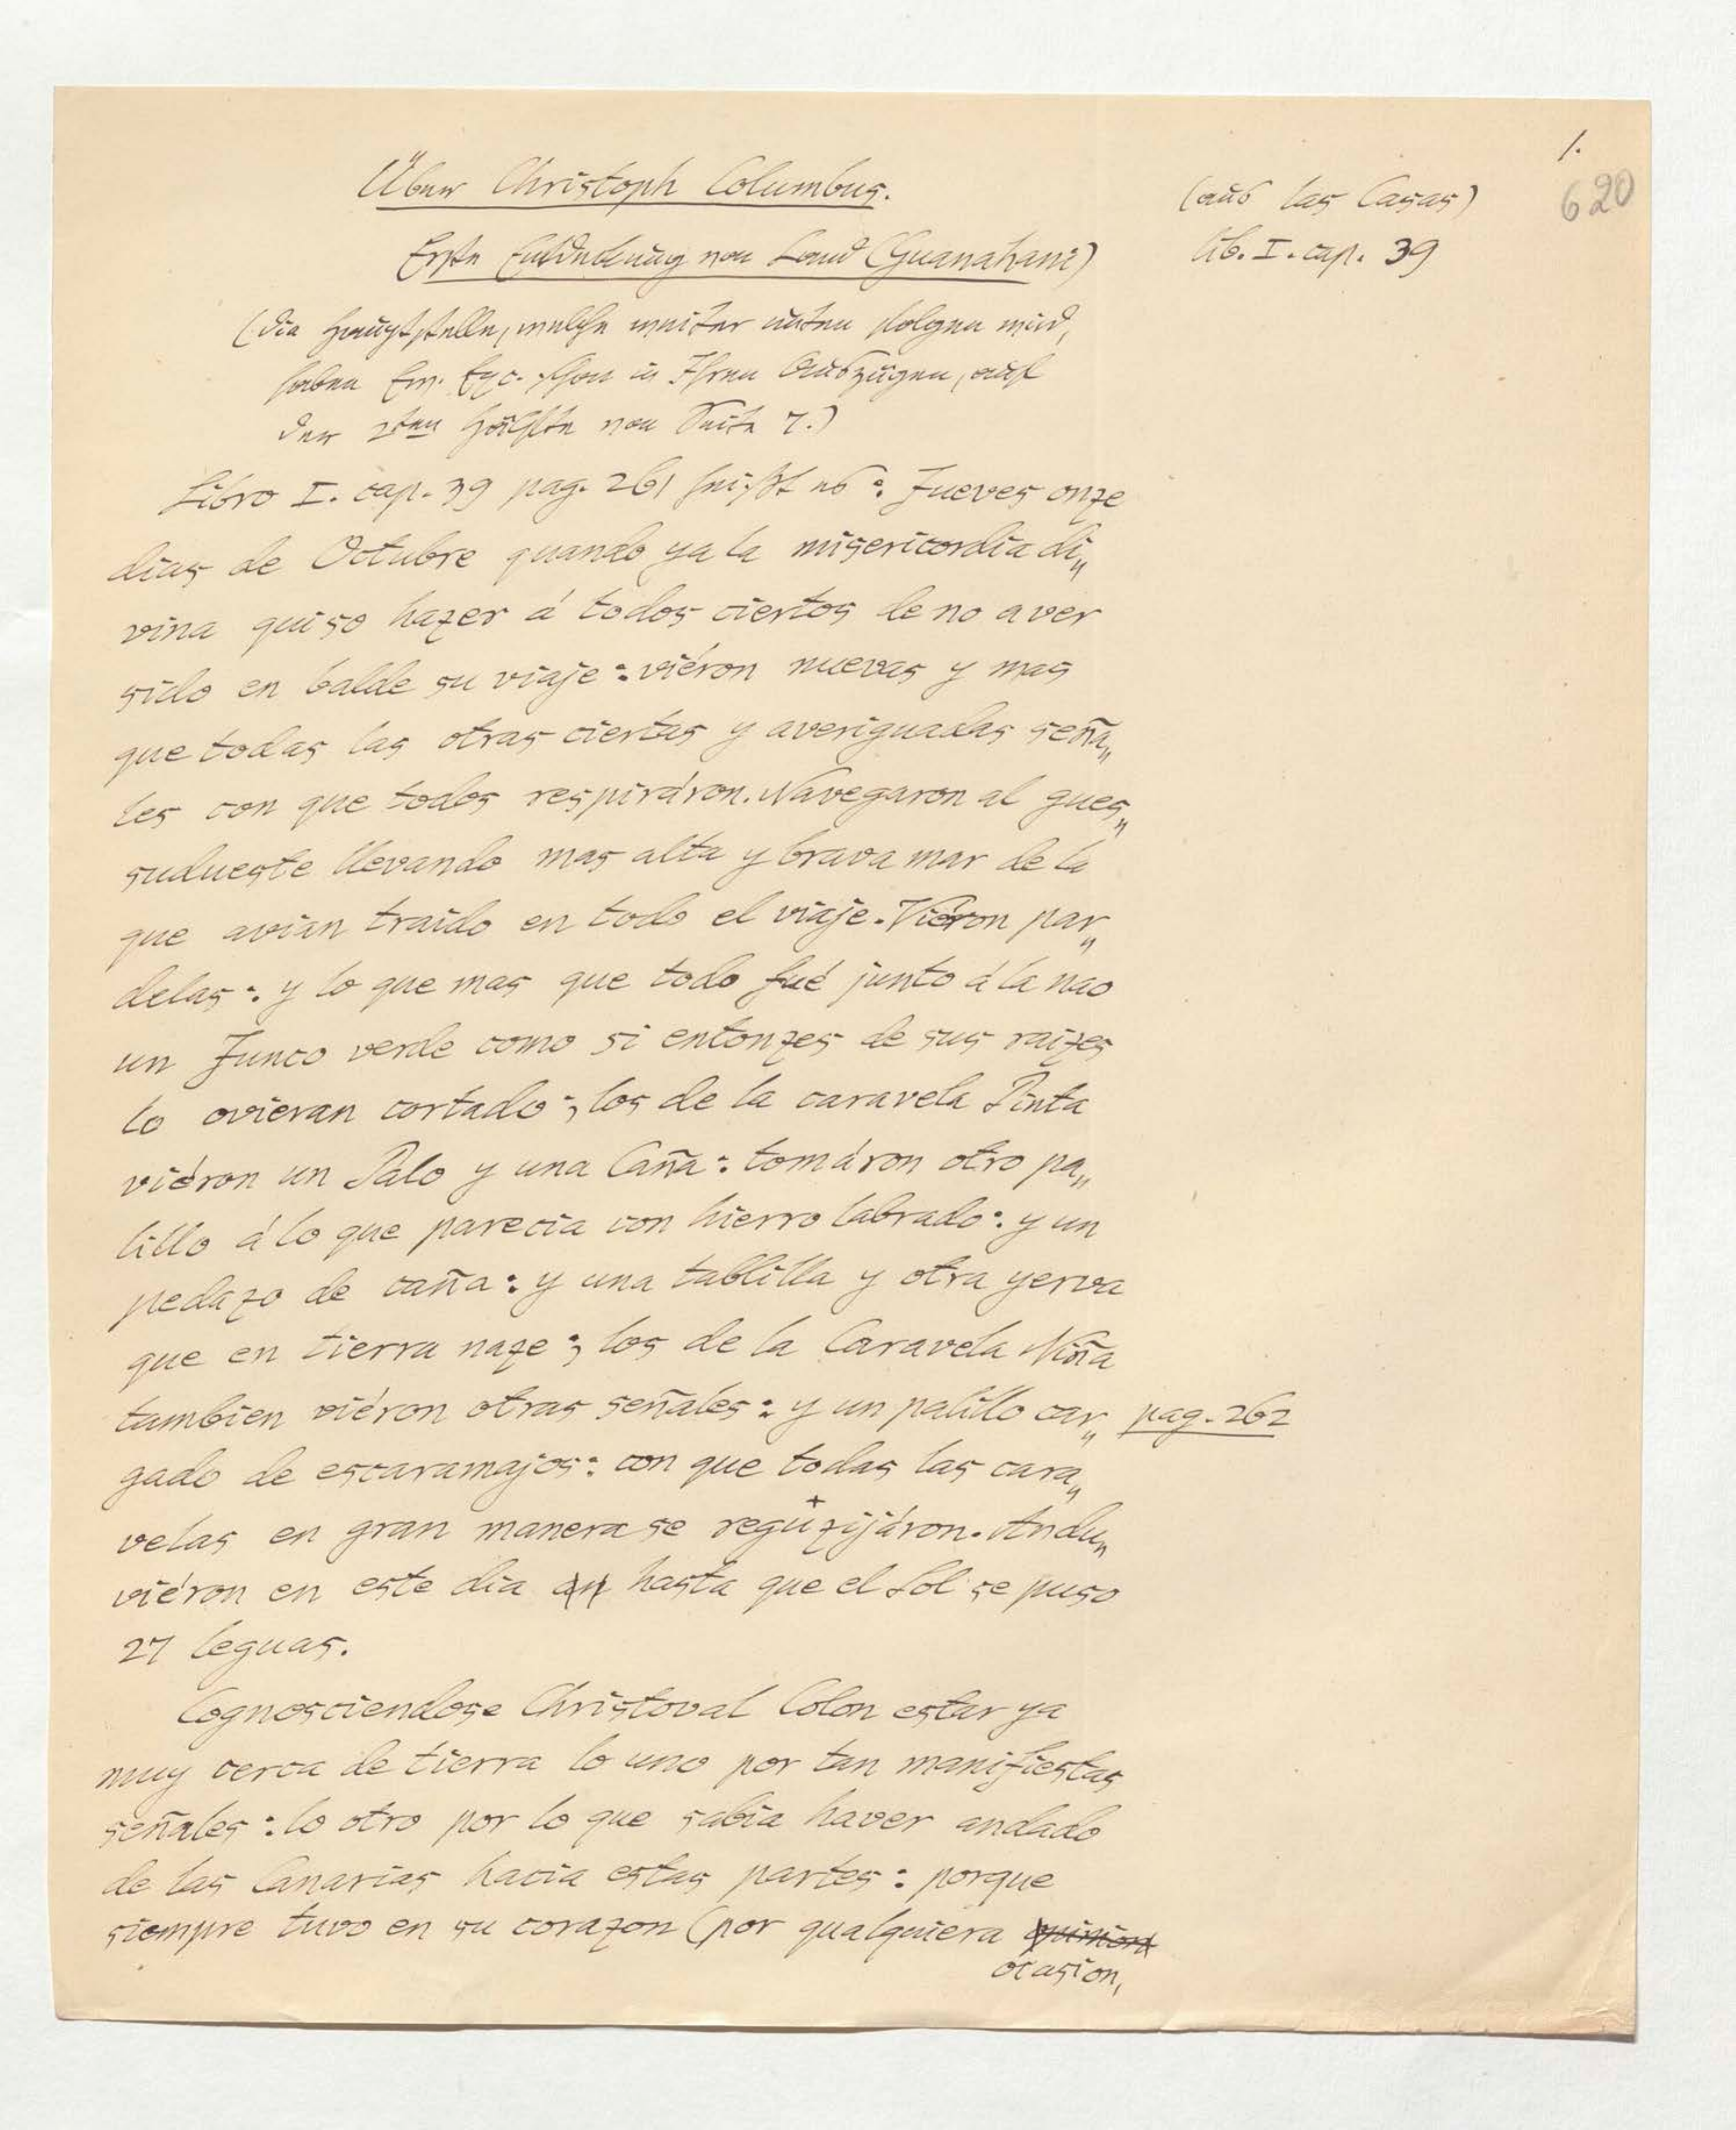 1.
620
Über Christoph Columbus.
(aus las Casas)
Erste Entdeckung von Land (Guanahani)
lib. I. cap. 39
(die Hauptstelle, welche weiter unten folgen wird,
haben Ew. Exc. schon in Ihren Auszügen, auf
der 2ten Hälfte von Seite 7.)
Libro I. cap. 39 pag. 261 heißt es: Jueves onze
dias de Octubre quando ya la misericordia di„
vina quiso hazer á todos ciertos de no aver
sido en balde su viaje: viéron nuevas y mas
que todas las otras ciertas y averiguadas seña„
les con que todos respiráron. Navegaron al gues„
sudueste llevando mas alta y brava mar de la
que avian traido en todo el viaje. Viéron par„
delas: y lo que mas que todo fué junto á la nao
un Junco verde como si entonzes de sus raizes
lo ovieran cortado; los de la caravela Pinta
viéron un Palo y una Caña: tomáron otro pa„
lillo á lo que parecia con hierro labrado: y un
pedazo de caña: y una tablilla y otra yerva
que en tierra naze; los de la Caravela Niña
tambien viéron otras señales: y un palillo car„
pag. 262
gado de escaramajos: con que todas las cara„
velas en gran manera se regu+zijáron. Andu„
viéron en este dia hasta que el Sol se puso
27 leguas.
Cognosciendose Christoval Colon estar ya
muy cerca de tierra lo uno por tan manifiestas
señales: lo otro por lo que sabia haver andado
de las Canarias hacia estas partes: porque
siempre tuvo en su corazon (por qualquiera
ocasion,